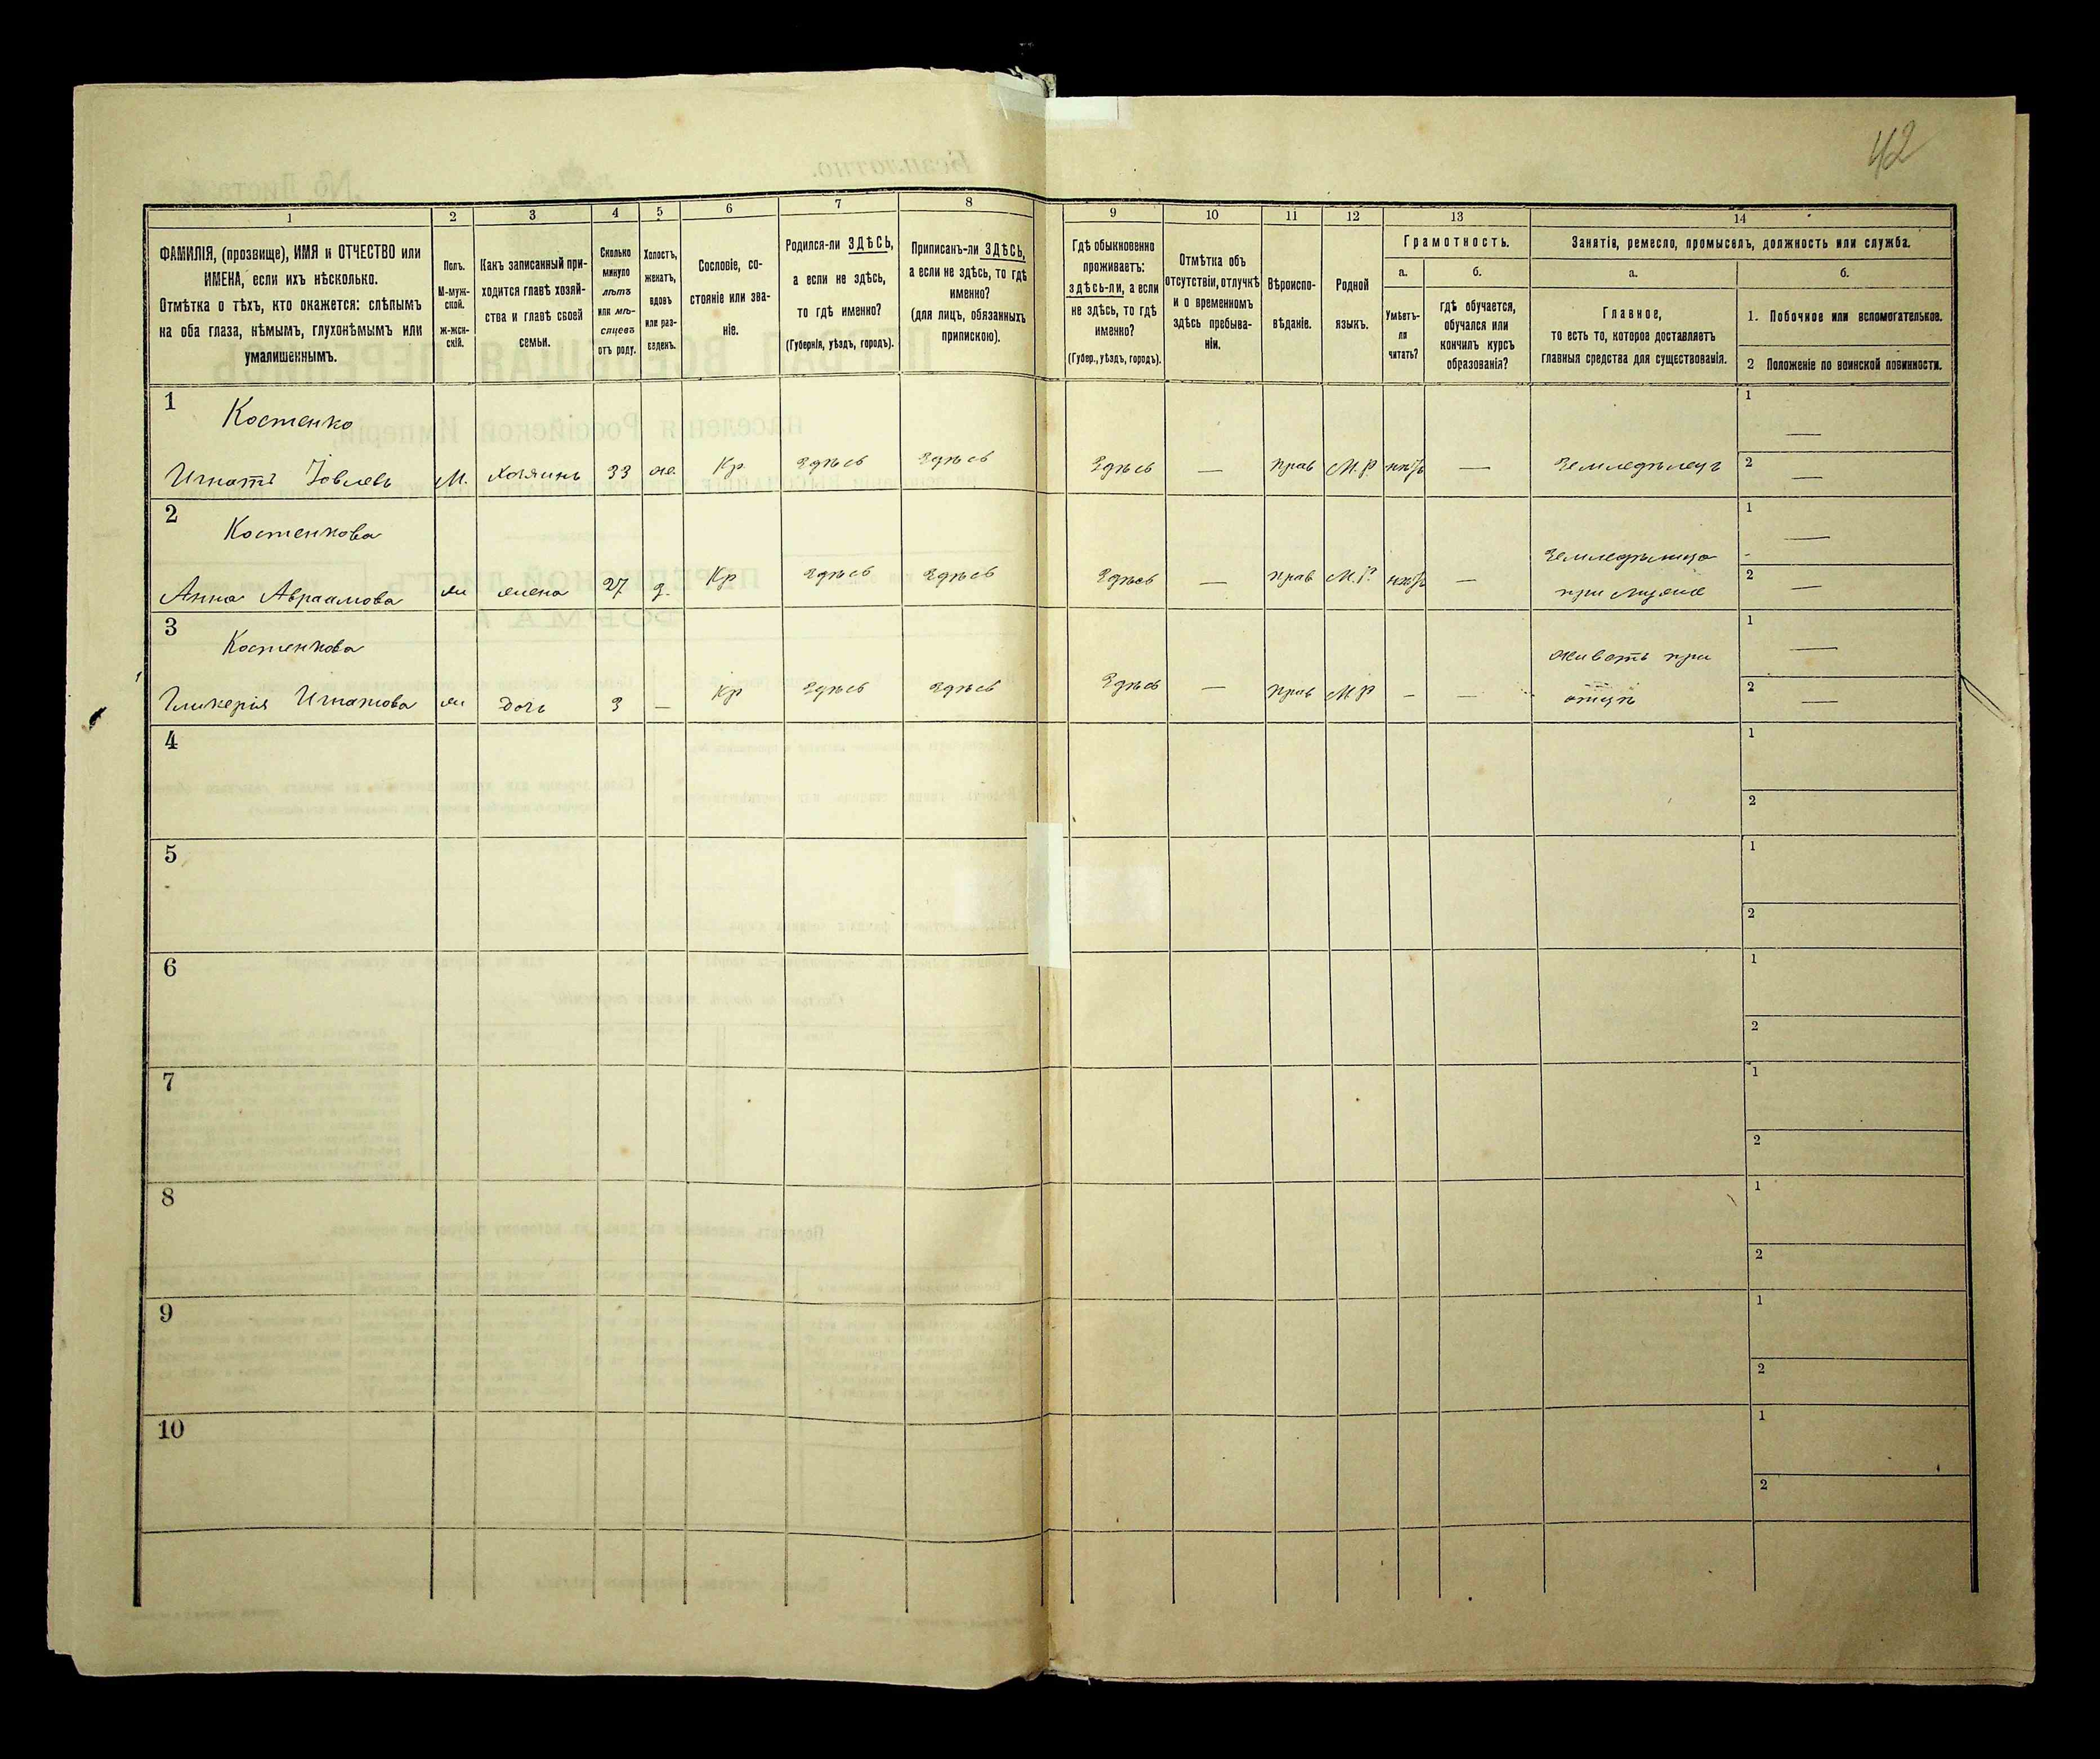 42
1 2 3 4 5 6 7 8 9 10 11 12 13 14
ФАМИЛІЯ, (прозвище), ИМЯ и ОТЧЕСТВО или
ИМЕНА, если ихъ нѣсколько.
Отмѣтка о тѣхъ, кто окажется: слѣпымъ
на оба глаза, нѣмымъ, глухонѣмымъ или
умалишеннымъ.
Полъ.
М-муж-
ской.
Ж-жен-
скій.
Какъ записанный при-
ходится главѣ хозяй-
ства и главѣ своей
семьи.
Сколько
минуло
лѣтъ
или мѣ-
сяцевъ
отъ роду.
Холостъ,
женатъ,
вдовъ
или раз-
веденъ.
Сословіе, со-
стояніе или зва-
ніе.
Родился-ли ЗДѢСЬ,
а если не здѣсь,
то гдѣ именно?
(Губернія, уѣздъ, городъ).
Приписанъ-ли ЗДѢСЬ,
а если не здѣсь, то гдѣ
именно?
(для лицъ, обязанныхъ
припискою).
Гдѣ обыкновенно
проживаетъ:
здѣсь-ли, а если
не здѣсь, то гдѣ
именно?
(Губер., уѣздъ, городъ).
Отмѣтка объ
отсутствіи, отлучкѣ
и о временномъ
здѣсь пребыва-
ніи.
Вѣроиспо-
вѣданіе.
Родной
языкъ.
Грамотность.
а.
Умѣетъ-
ли
читать?
б.
гдѣ обучается,
обучался или
кончилъ курсъ
образованія?
Занятія, ремесло, промыселъ, должность или служба.
а.
Главное,
то есть то, которое доставляетъ
главныя средства для существованія.
б.
1. Побочное или вспомогательное.
2 Положеніе по воинской повинности.
1
Костенко
Игнатъ Іовлевъ М. хозяинъ 33 же. Кр. Здѣсь Здѣсь Здѣсь — прав М.Р. — Земледѣлецъ
1 —
2 —
2
Костенкова
Анна Авраамова ж жена 27 з. Кр Здѣсь Здѣсь Здѣсь — прав М.Р. — Земледѣлица
при мужѣ
1 —
2 —
3
Костенкова
Гликерія Игнатова ж дочь 3 — Кр Здѣсь Здѣсь Здѣсь — прав М.Р — — живетъ при
отцѣ
1 —
2 —
4
1
2
5
1
2
6
1
2
7
1
2
8
1
2
9
1
2
10
1
2